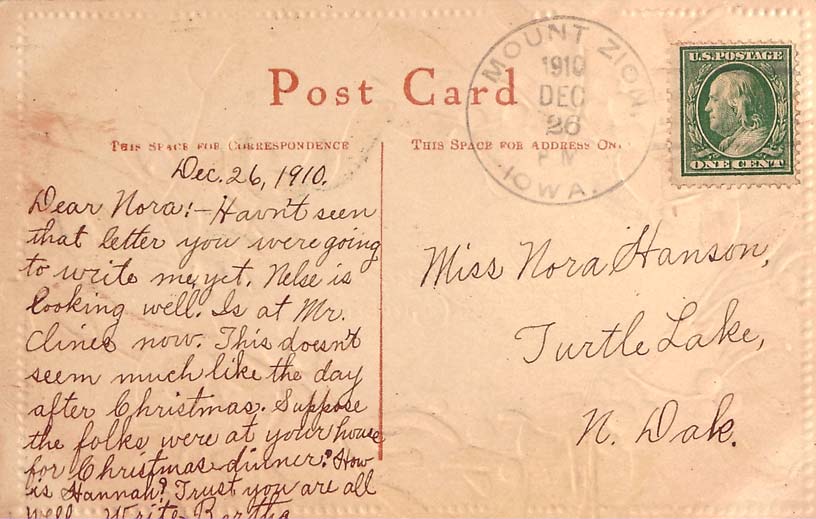 Post Card
THIS SPACE FOR CORRESPONDENCE
THIS SPACE FOR ADDRESS
MOUNT ZION,
1910
DEC
26
PM
IOWA.
U.S. POSTAGE
ONE CENT
Dec. 26, 1910.
Dear Nora:- Havn't seen
that letter you were going
to write me, yet. Nelse is
looking well. Is at Mr.
Clines now. This doesn't
seem much like the day
after Christmas. Suppose
the folks were at your house
for Christmas dinner? How
is Hannah? Trust you are all
well. Write Bertha
Miss Nora Hanson,
Turtle Lake,
N. Dak.